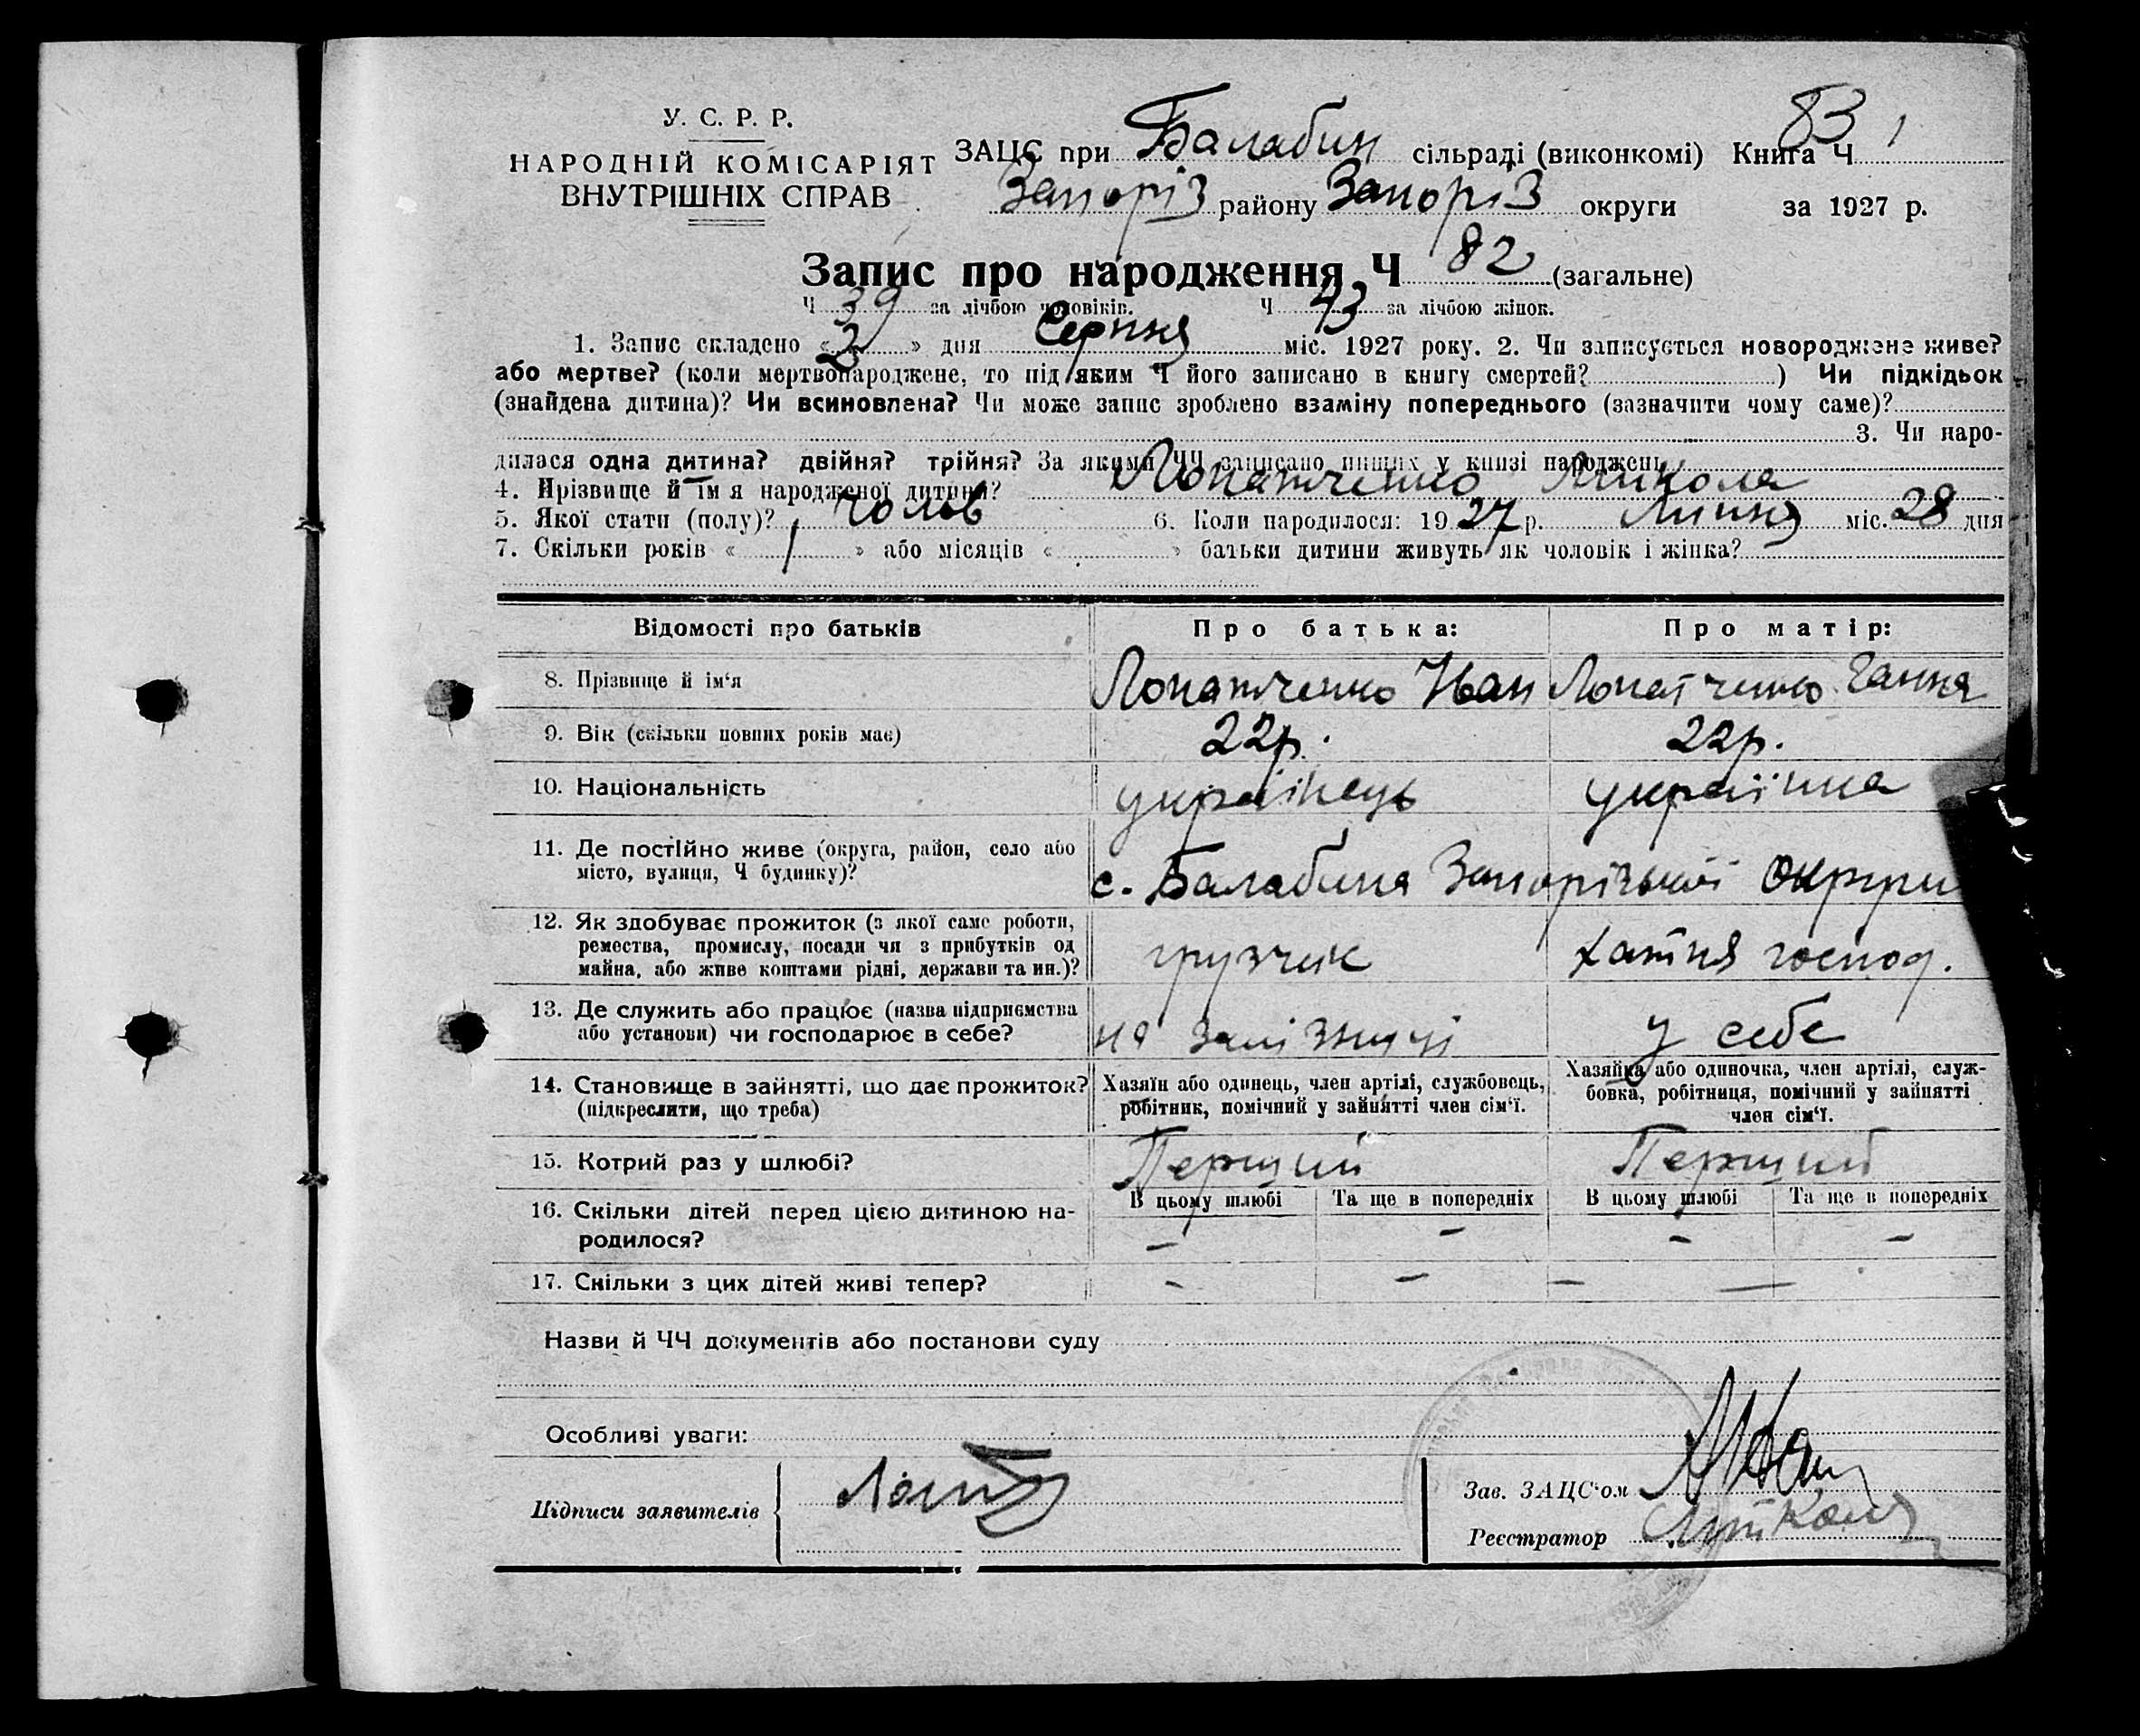 83
У. С. Р. Р.
НАРОДНІЙ КОМІСАРІЯТ
ВНУТРІШНІХ СПРАВ
ЗАЦС при Балабин сільраді (виконкомі) Книга Ч 1
Запоріз району Запоріз округи за 1927 р.
Запис про народження Ч 82 (загальне)
Ч 39 за лічбою чоловіків. Ч 43 за лічбою жінок.
1. Запис складено « 2 » дня Серпня міс. 1927 року. 2. Чи записується новороджене живе?
або мертве? (коли мертвонароджене, то під яким Ч його записано в книгу смертей? ) Чи підкідьок
(знайдена дитина)? Чи всиновлена? Чи може запис зроблено взаміну попереднього (зазначити чому саме)?
3. Чи наро-
дилася одна дитина? двійня? трійня? За якими ЧЧ записано инших у книзі народжень
4. Прізвище й ім'я народженої дитини? Лопатченко Микола
5. Якої стати (полу)? чолов 6. Коли народилося: 1927 р. Липня міс. 28 дня
7. Скільки років « 1 » або місяців « » батьки дитини живуть як чоловік і жінка?
Відомості про батьків Про батька: Про матір:
8. Прізвище й ім‘я Лопатченко Иван Лопатченко Ганна
9. Вік (скільки повних років має) 22р. 22р.
10. Національність українець українка
11. Де постійно живе (округа, район, село або
місто, вулиця, Ч будинку)? с. Балабина Запорізької Округи
12. Як здобуває прожиток (з якої саме роботи,
ремества, промислу, посади чи з прибутків од
майна, або живе коштами рідні, держави та ин.)? грузчик хатня господ.
13. Де служить або працює (назва підприємства
або установи) чи господарює в себе? на залізниці у себе
14. Становище в зайнятті, що дає прожиток?
(підкреслити, що треба)
Хазяїн або одинець, член артілі, службовець,
робітник, помічний у зайнятті член сім‘ї.
Хазяйка або одиночка, член артілі, служ-
бовка, робітниця, помічний у зайнятті
член сім‘ї.
15. Котрий раз у шлюбі? Перший Перший
16. Скільки дітей перед цією дитиною на-
родилося?
В цьому шлюбі Та ще в попередніх В цьому шлюбі Та ще в попередніх
– – – –
17. Скільки з цих дітей живі тепер? – – – –
Назви й ЧЧ документів або постанови суду
Особливі уваги:
Підписи заявителів
Зав. ЗАЦС‘ом
Реєстратор